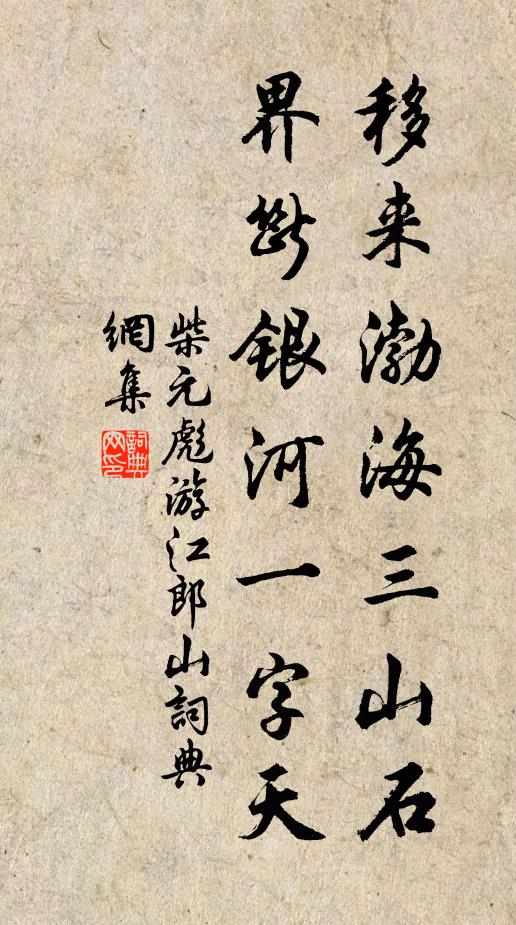 移来渤海三山石
界断銀河一字天
柴元彪游江郎山詞典
網集
詞典
网印